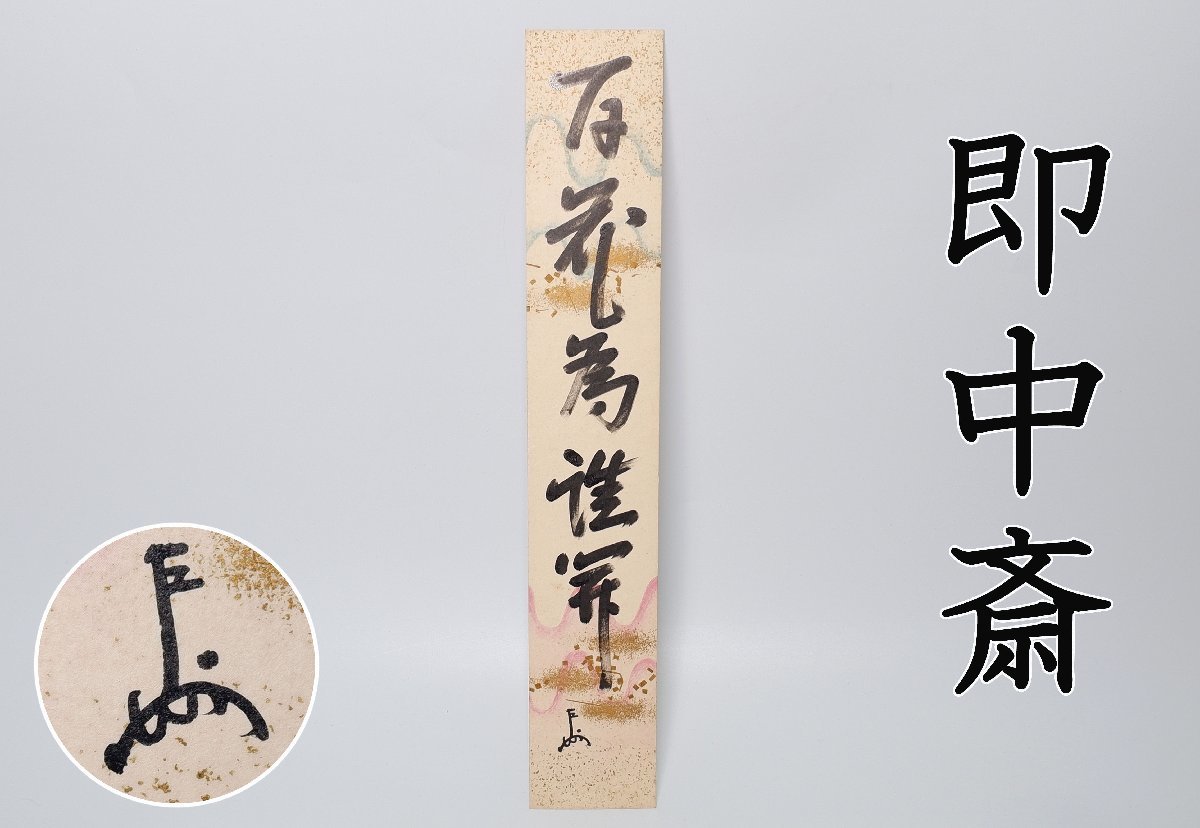 百花為誰開
即中斎